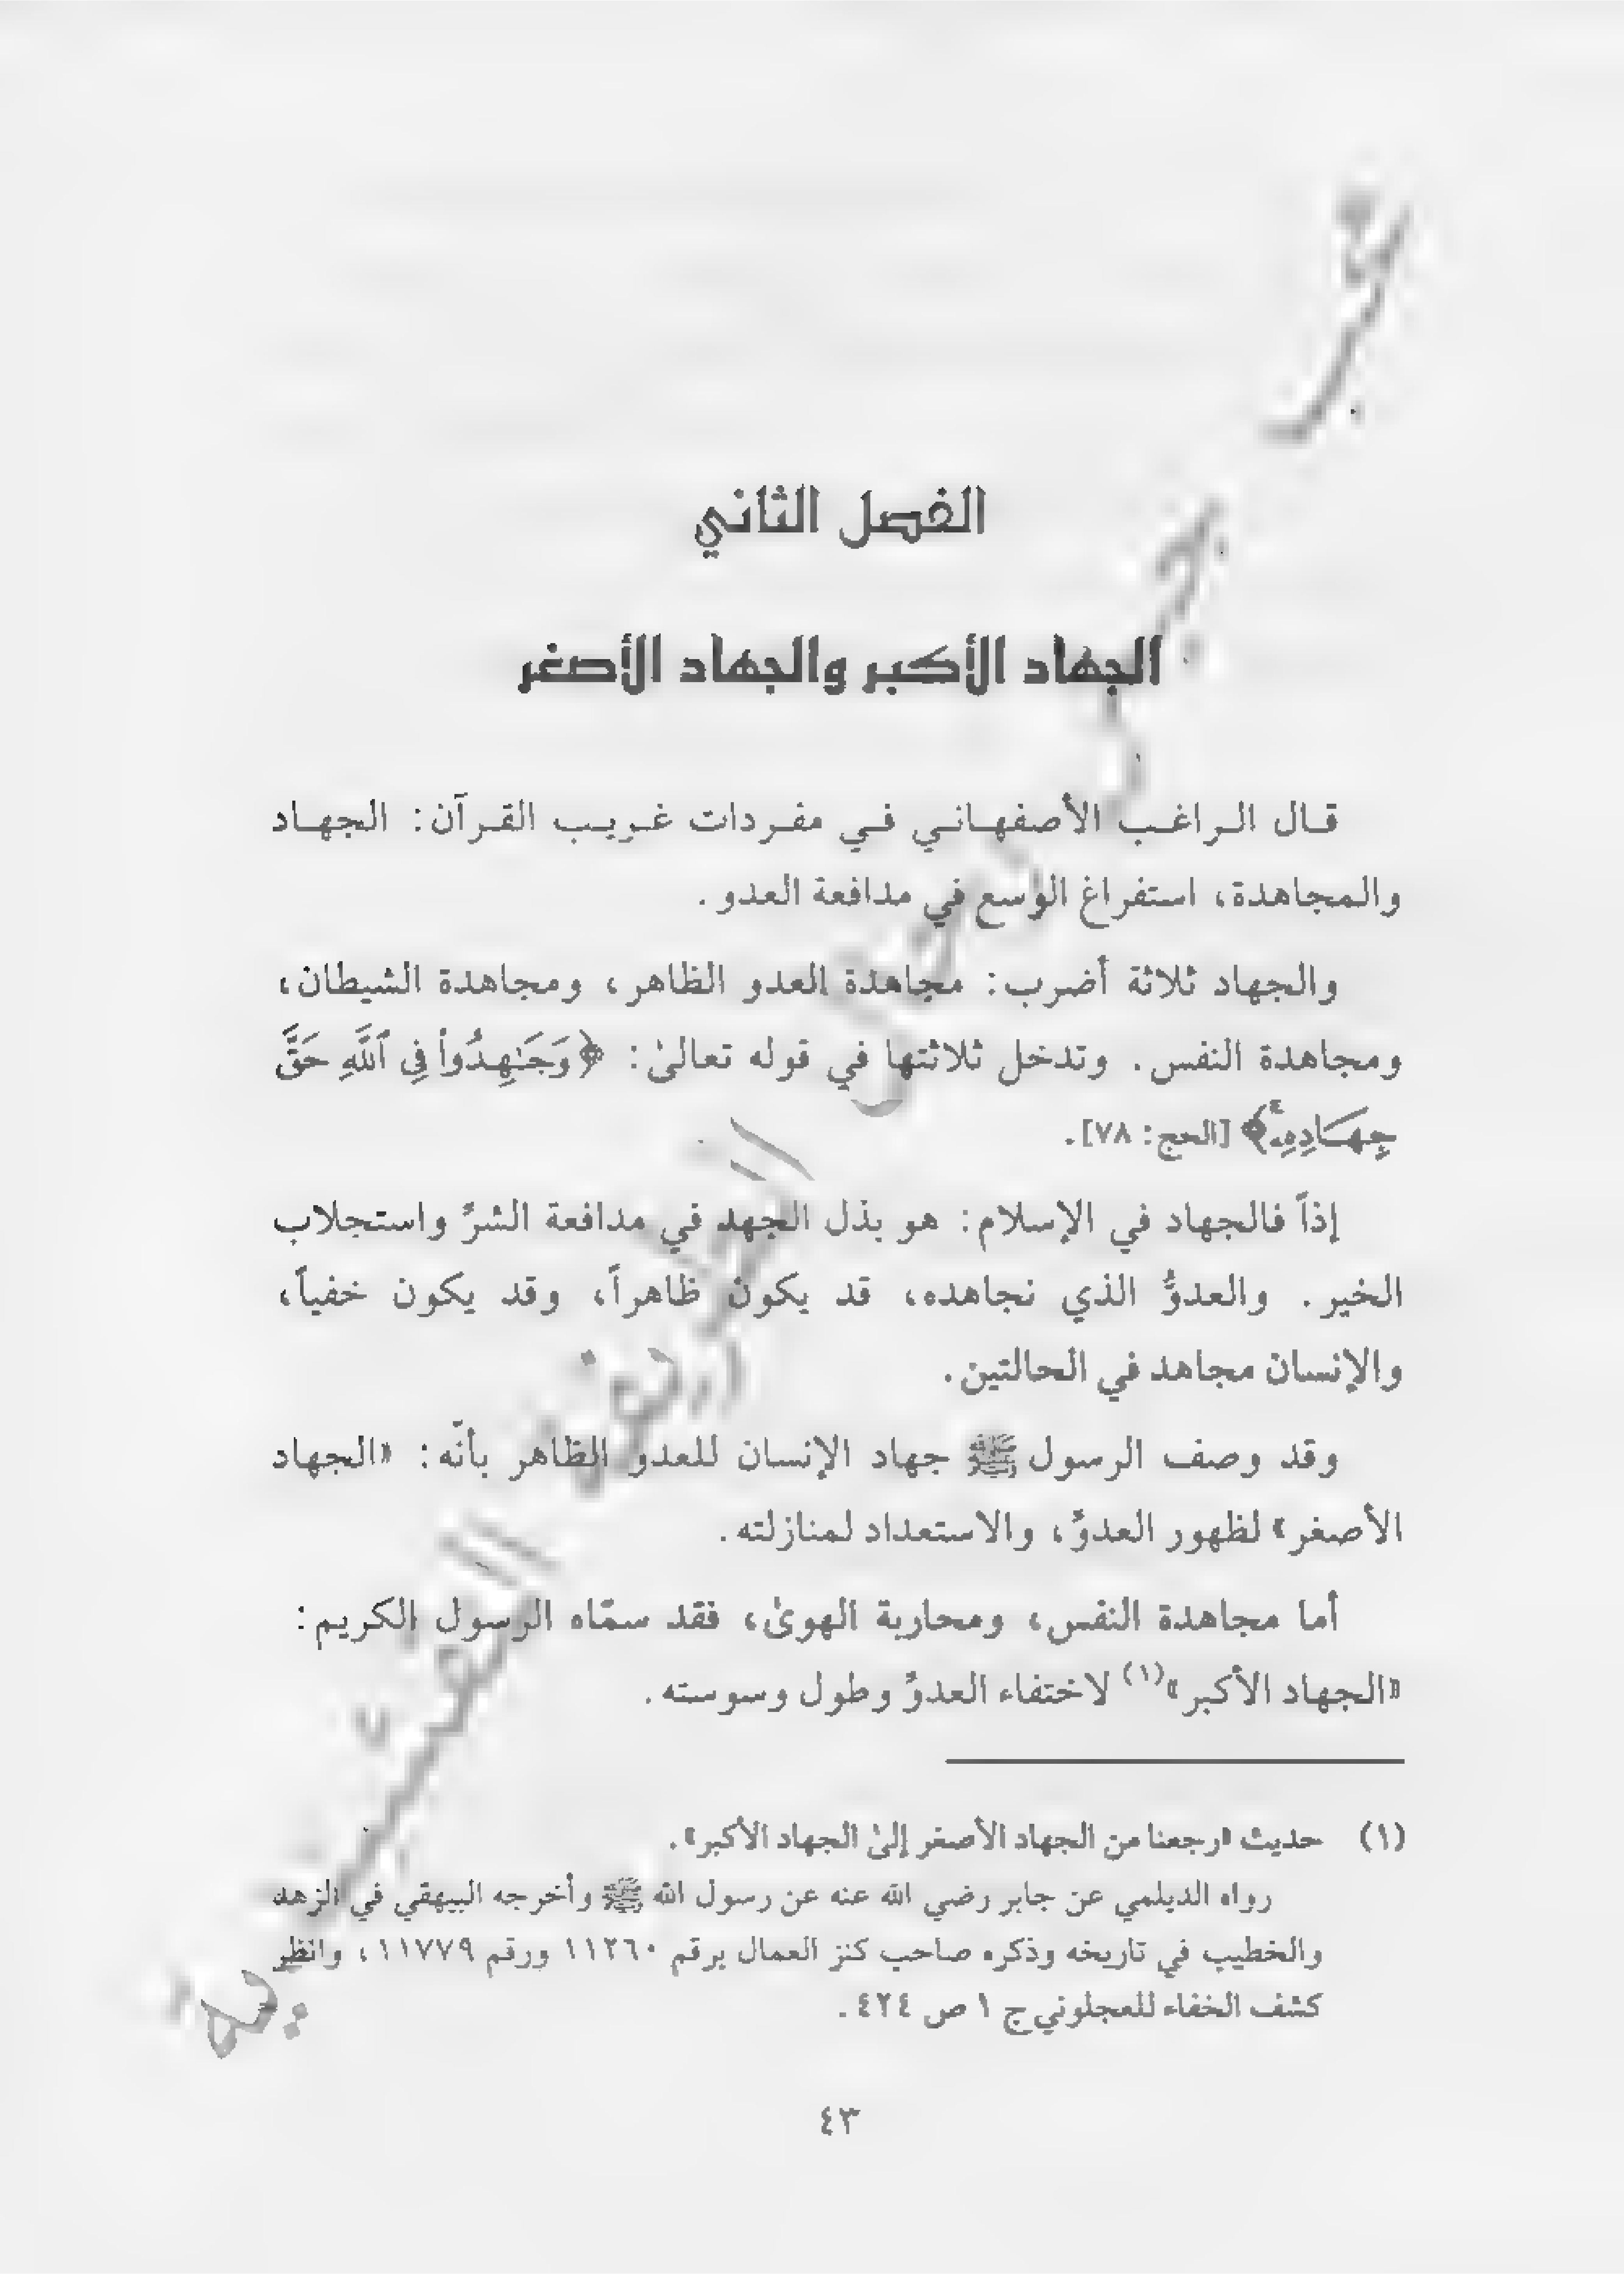 الفصل الثاني
الجهاد الأكبر والجهاد الأصغر
قال الراغب الأصفهاني في مفردات غريب القرآن: الجهاد
والمجاهدة، استفراغ الوسع في مدافعة العدو.
والجهاد ثلاثة أضرب: مجاهدة العدو الظاهر، ومجاهدة الشيطان،
ومجاهدة النفس. وتدخل ثلاثتها في قوله تعالىٰ: ﴿وَجَٰهِدُوا۟ فِى ٱللَّهِ حَقَّ
جِهَادِهِۦۚ﴾ [الحج: ٧٨].
إذاً فالجهاد في الإسلام: هو بذل الجهد في مدافعة الشرِّ واستجلاب
الخير. والعدوُّ الذي نجاهده، قد يكون ظاهراً، وقد يكون خفياً،
والإنسان مجاهد في الحالتين.
وقد وصف الرسول ﷺ جهاد الإنسان للعدو الظاهر بأنّه: «الجهاد
الأصغر» لظهور العدوِّ، والاستعداد لمنازلته.
أما مجاهدة النفس، ومحاربة الهوىٰ، فقد سمّاه الرسول الكريم:
«الجهاد الأكبر»(١) لاختفاء العدوِّ وطول وسوسته.
(١) حديث «رجعنا من الجهاد الأصغر إلىٰ الجهاد الأكبر».
رواه الديلمي عن جابر رضي الله عنه عن رسول الله ﷺ وأخرجه البيهقي في الزهد
والخطيب في تاريخه وذكره صاحب كنز العمال برقم ١١٢٦٠ ورقم ١١٧٧٩، وانظر
كشف الخفاء للعجلوني ج ١ ص ٤٢٤.
٤٣